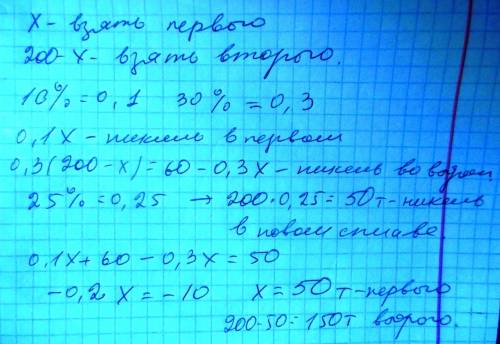 x - взять первого
200-x - взять второго.
10% = 0,1 30% = 0,3
0,1x - никель в первом
0,3(200-x) = 60 - 0,3x - никель во втором
25% = 0,25 → 200·0,25 = 50т - никель
в новом сплаве.
0,1x + 60 - 0,3x = 50
-0,2x = -10 x = 50т - первого
200-50 = 150т второго.